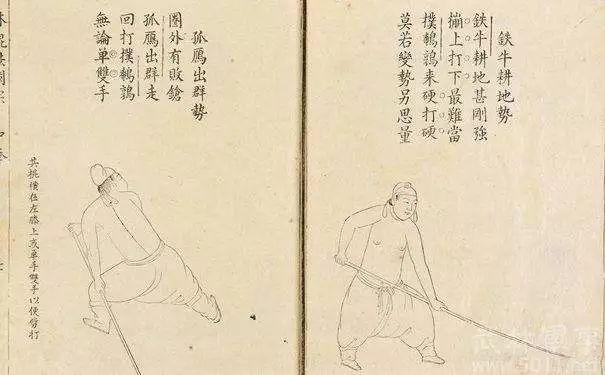 鉄牛耕地勢
鉄牛耕地甚剛強
搠上打下最難當
撲鵪鶉来硬打硬
莫若變勢另思量
孤鴈出群勢
圈外有敗鎗
孤鴈出群走
回打撲鵪鶉
無論单雙手
其挑横在左膝上或单手雙手以便劈打